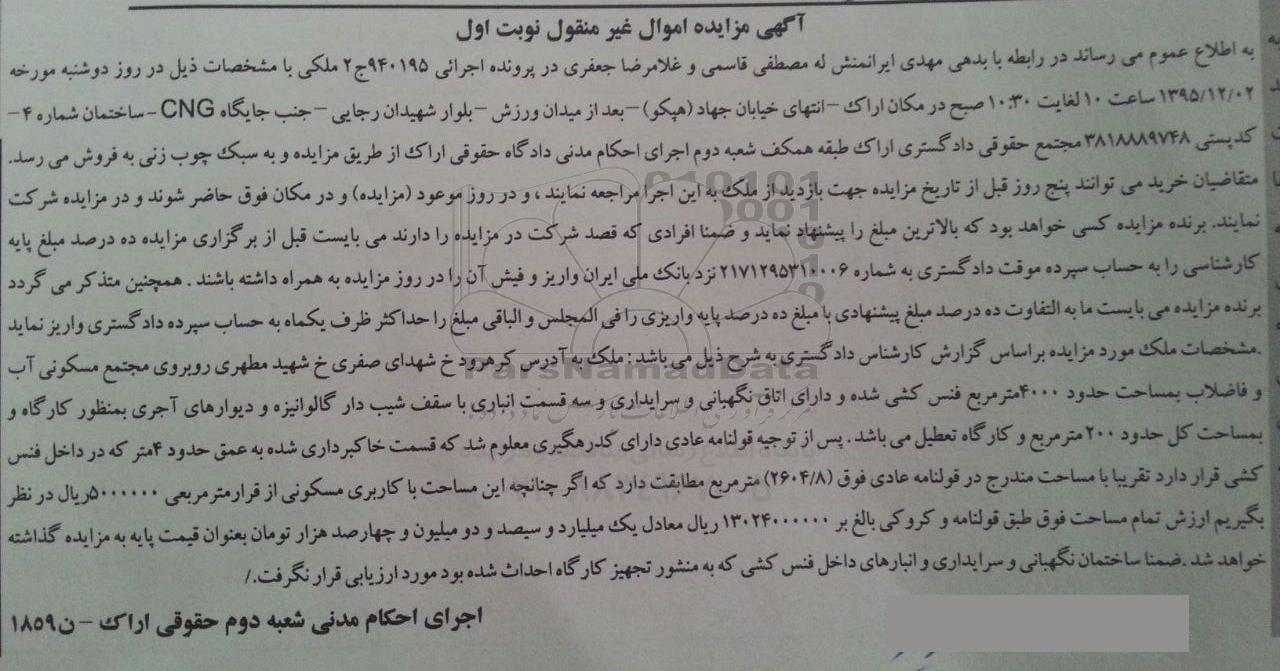 آگهی مزایده اموال غیر منقول نوبت اول
به اطلاع عموم می رساند در رابطه با بدهی مهدی ایرانمنش له مصطفی قاسمی و غلامرضا جعفری در پرونده اجرائی ۹۴۰۱۹۵ج۲ ملکی با مشخصات ذیل در روز دوشنبه مورخه
۱۳۹۵/۱۲/۰۲ ساعت ۱۰ لغایت ۱۰:۳۰ صبح در مکان اراک –انتهای خیابان جهاد (هپکو) –بعد از میدان ورزش –بلوار شهیدان رجایی –جنب جایگاه CNG -ساختمان شماره ۴–
کدپستی ۳۸۱۸۸۸۹۷۴۸ مجتمع حقوقی دادگستری اراک طبقه همکف شعبه دوم اجرای احکام مدنی دادگاه حقوقی اراک از طریق مزایده و به سبک چوب زنی به فروش می رسد.
متقاضیان خرید می توانند پنج روز قبل از تاریخ مزایده جهت بازدید از ملک به این اجرا مراجعه نمایند ، و در روز موعود (مزایده) و در مکان فوق حاضر شوند و در مزایده شرکت
نمایند. برنده مزایده کسی خواهد بود که بالاترین مبلغ را پیشنهاد نماید و ضمنا افرادی که قصد شرکت در مزایده را دارند می بایست قبل از برگزاری مزایده ده درصد مبلغ پایه
کارشناسی را به حساب سپرده موقت دادگستری به شماره ۲۱۷۱۲۹۵۳۱۰۰۰۶ نزد بانک ملی ایران واریز و فیش آن را در روز مزایده به همراه داشته باشند . همچنین متذکر می گردد
برنده مزایده می بایست ما به التفاوت ده درصد مبلغ پیشنهادی با مبلغ ده درصد پایه واریزی را فی المجلس و الباقی مبلغ را حداکثر ظرف یکماه به حساب سپرده دادگستری واریز نماید
.مشخصات ملک مورد مزایده براساس گزارش کارشناس دادگستری به شرح ذیل می باشد : ملک به آدرس کرهرود خ شهدای صفری خ شهید مطهری روبروی مجتمع مسکونی آب
و فاضلاب بمساحت حدود ۴۰۰۰مترمربع فنس کشی شده و دارای اتاق نگهبانی و سرایداری و سه قسمت انباری با سقف شیب دار گالوانیزه و دیوارهای آجری بمنظور کارگاه و
بمساحت کل حدود ۲۰۰ مترمربع و کارگاه تعطیل می باشد . پس از توجیه قولنامه عادی دارای کدرهگیری معلوم شد که قسمت خاکبرداری شده به عمق حدود ۴متر که در داخل فنس
کشی قرار دارد تقریبا با مساحت مندرج در قولنامه عادی فوق (۲۶۰۴/۸) مترمربع مطابقت دارد که اگر چنانچه این مساحت با کاربری مسکونی از قرارمترمربعی ۵۰۰۰۰۰۰ریال در نظر
بگیریم ارزش تمام مساحت فوق طبق قولنامه و کروکی بالغ بر ۱۳۰۲۴۰۰۰۰۰۰ ریال معادل یک میلیارد و سیصد و دو میلیون و چهارصد هزار تومان بعنوان قیمت پایه به مزایده گذاشته
خواهد شد .ضمنا ساختمان نگهبانی و سرایداری و انبارهای داخل فنس کشی که به منشور تجهیز کارگاه احداث شده بود مورد ارزیابی قرار نگرفت./
اجرای احکام مدنی شعبه دوم حقوقی اراک –ن۱۸۵۹
ParsNamadData